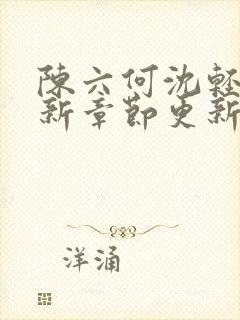 陳六何沈輕
新章節更新
洋涌